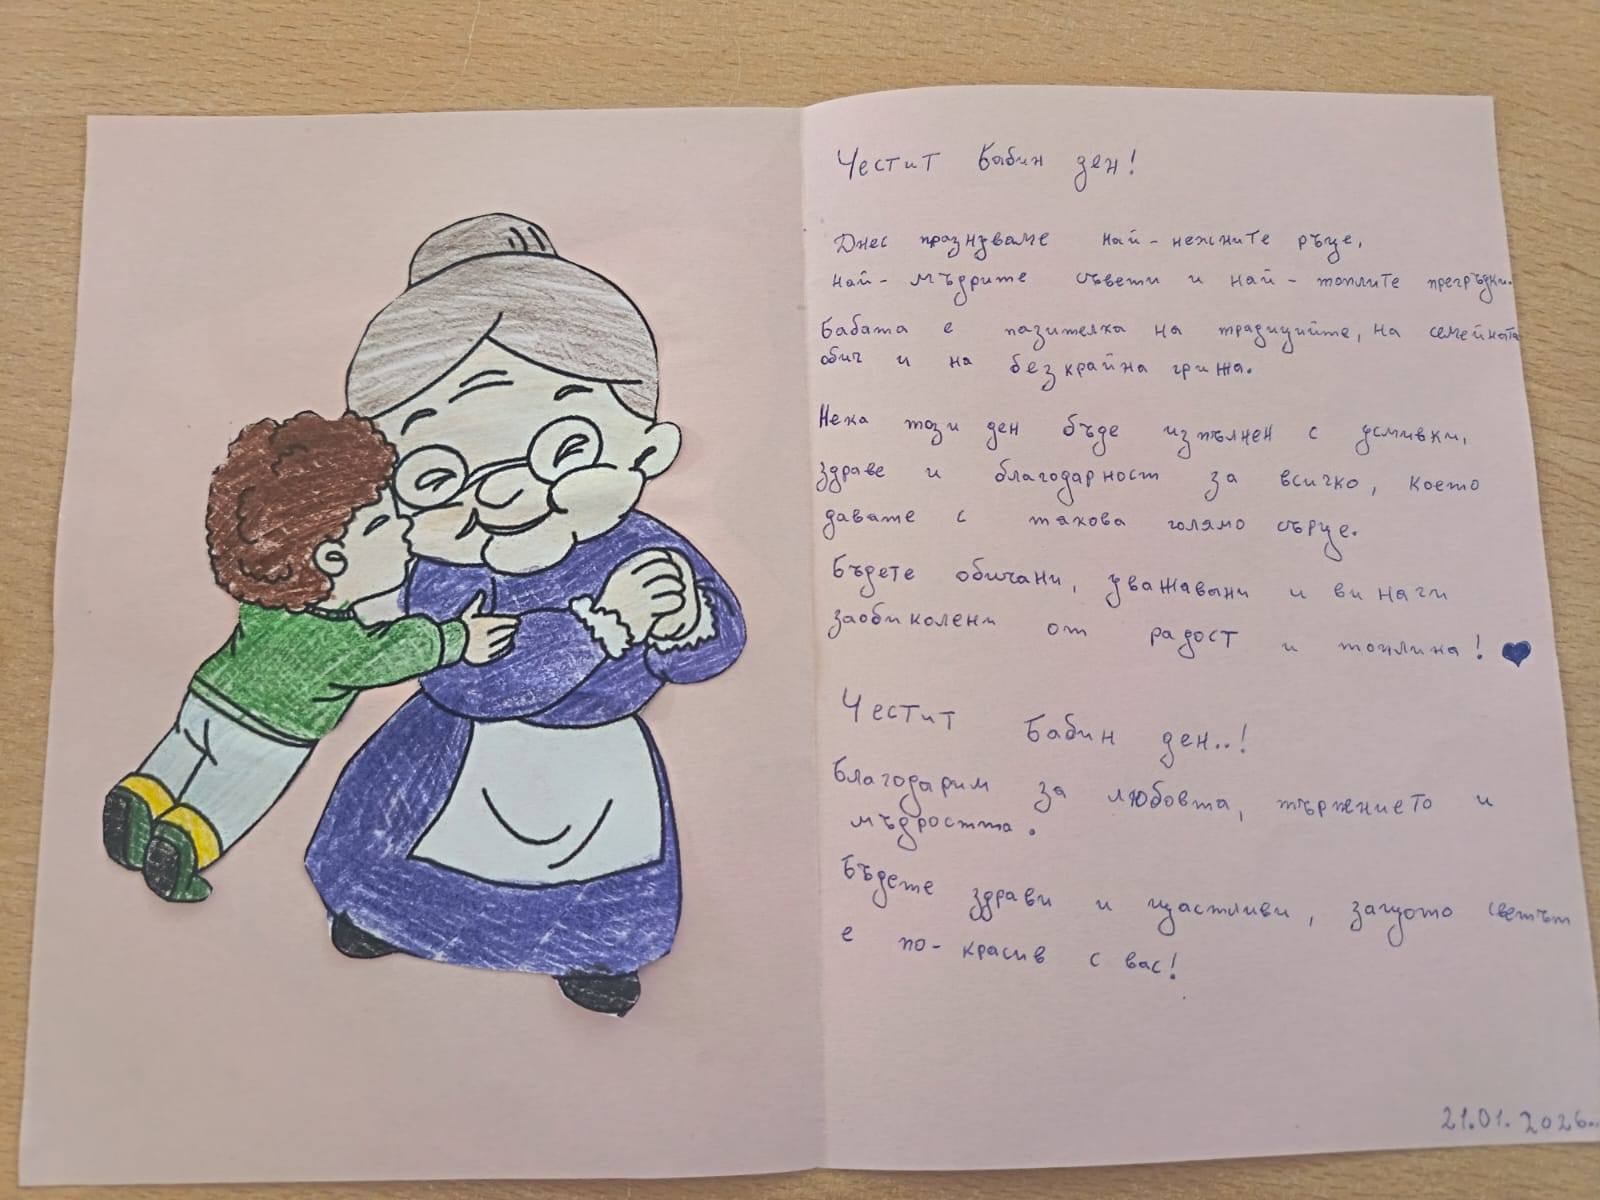 Честит Бабин ден!
Днес празнуваме най-нежните ръце,
най-мъдрите съвети и най-топлите прегръдки.
Бабата е пазителка на традициите, на семейната
обич и на безкрайна грижа.
Нека този ден бъде изпълнен с усмивки,
здраве и благодарност за всичко, което
давате с такова голямо сърце.
Бъдете обичани, уважавани и винаги
заобиколени от радост и топлина!
Честит Бабин ден..!
Благодарим за любовта, търпението и
мъдростта.
Бъдете здрави и щастливи, защото светът
е по-красив с вас!
21.01.2026..